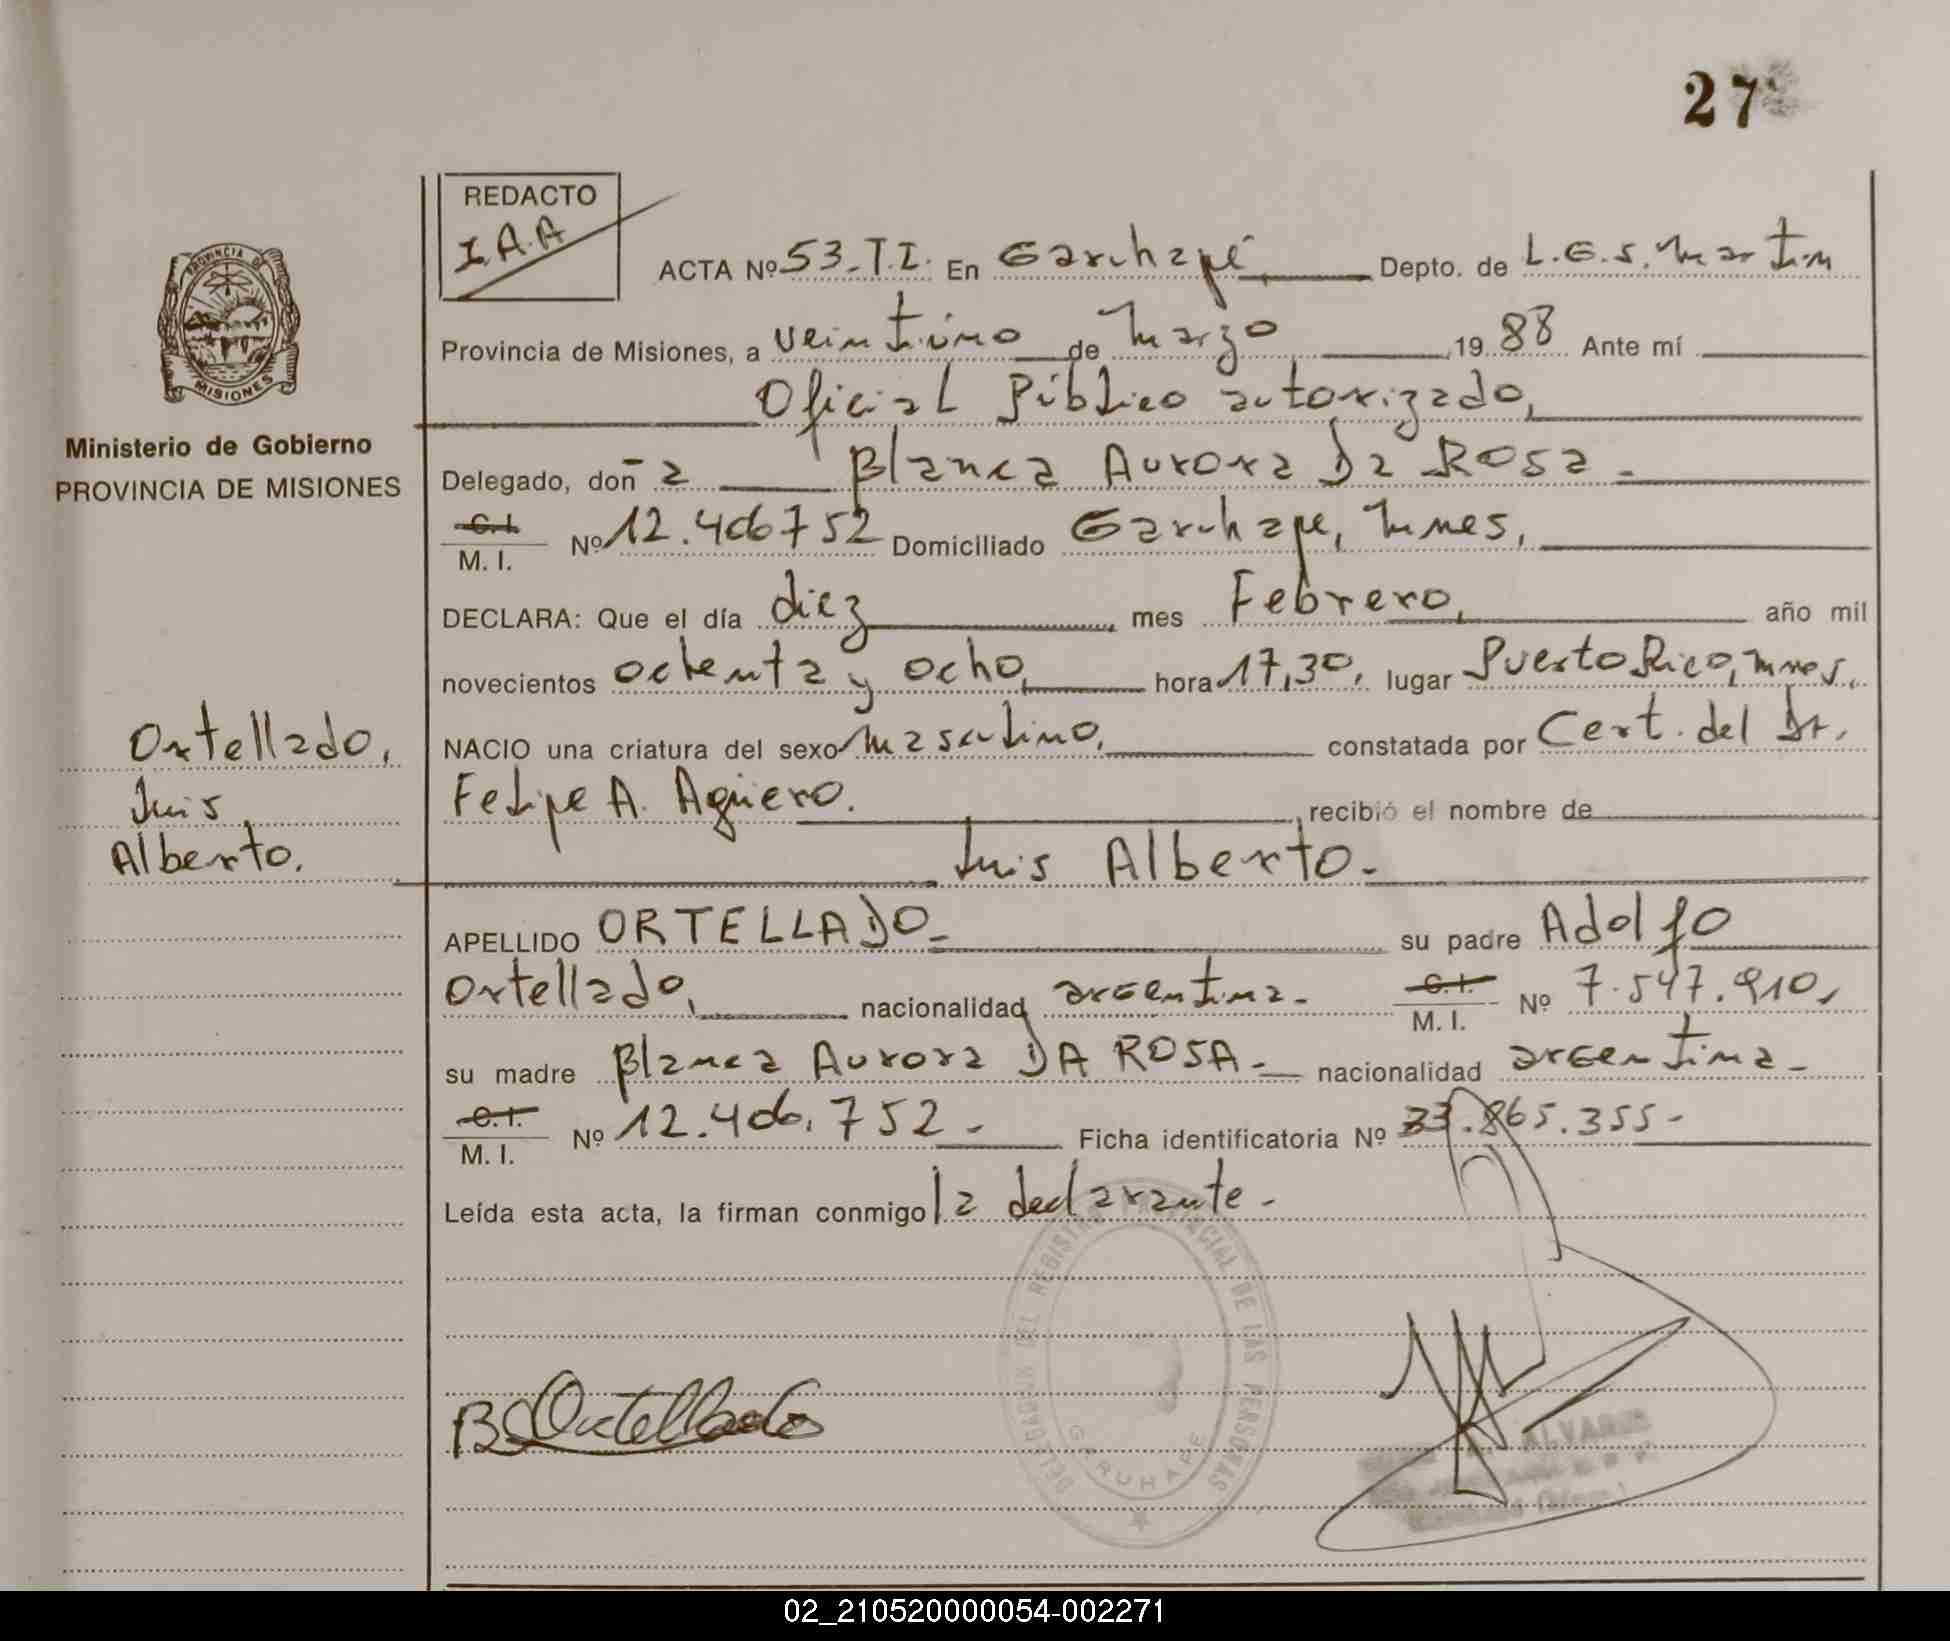 27
REDACTO
I.A.A
ACTA Nº 53-T.I. En Garuhapé Depto. de L.G.S. Martin
Provincia de Misiones, a veintiuno de Marzo 1988 Ante mí
Oficial Público autorizado,
Delegado, doña Blanca Aurora Da Rosa.
C.I.
M. I. Nº 12.406752 Domiciliado Garuhape, Mnes,
DECLARA: Que el día diez mes Febrero, año mil
novecientos ochenta y ocho, hora 17,30, lugar Puerto Rico, Mnes,
NACIO una criatura del sexo Masculino, constatada por Cert. del Dr.
Felipe A. Agüero. recibió el nombre de
Luis Alberto.
APELLIDO ORTELLADO su padre Adolfo
Ortellado, nacionalidad argentina. C.I.
M. I. Nº 7.547.910,
su madre Blanca Aurora DA ROSA nacionalidad argentina
C.I.
M. I. Nº 12.406.752. Ficha identificatoria Nº 33.865.355-
Leída esta acta, la firman conmigo la declarante.
PROVINCIA DE
MISIONES
Ministerio de Gobierno
PROVINCIA DE MISIONES
Ortellado,
Luis
Alberto.
B Ortellado
DELEGACION DEL REGISTRO PROVINCIAL DE LAS PERSONAS
GARUHAPE
ALVAREZ
02_210520000054-002271